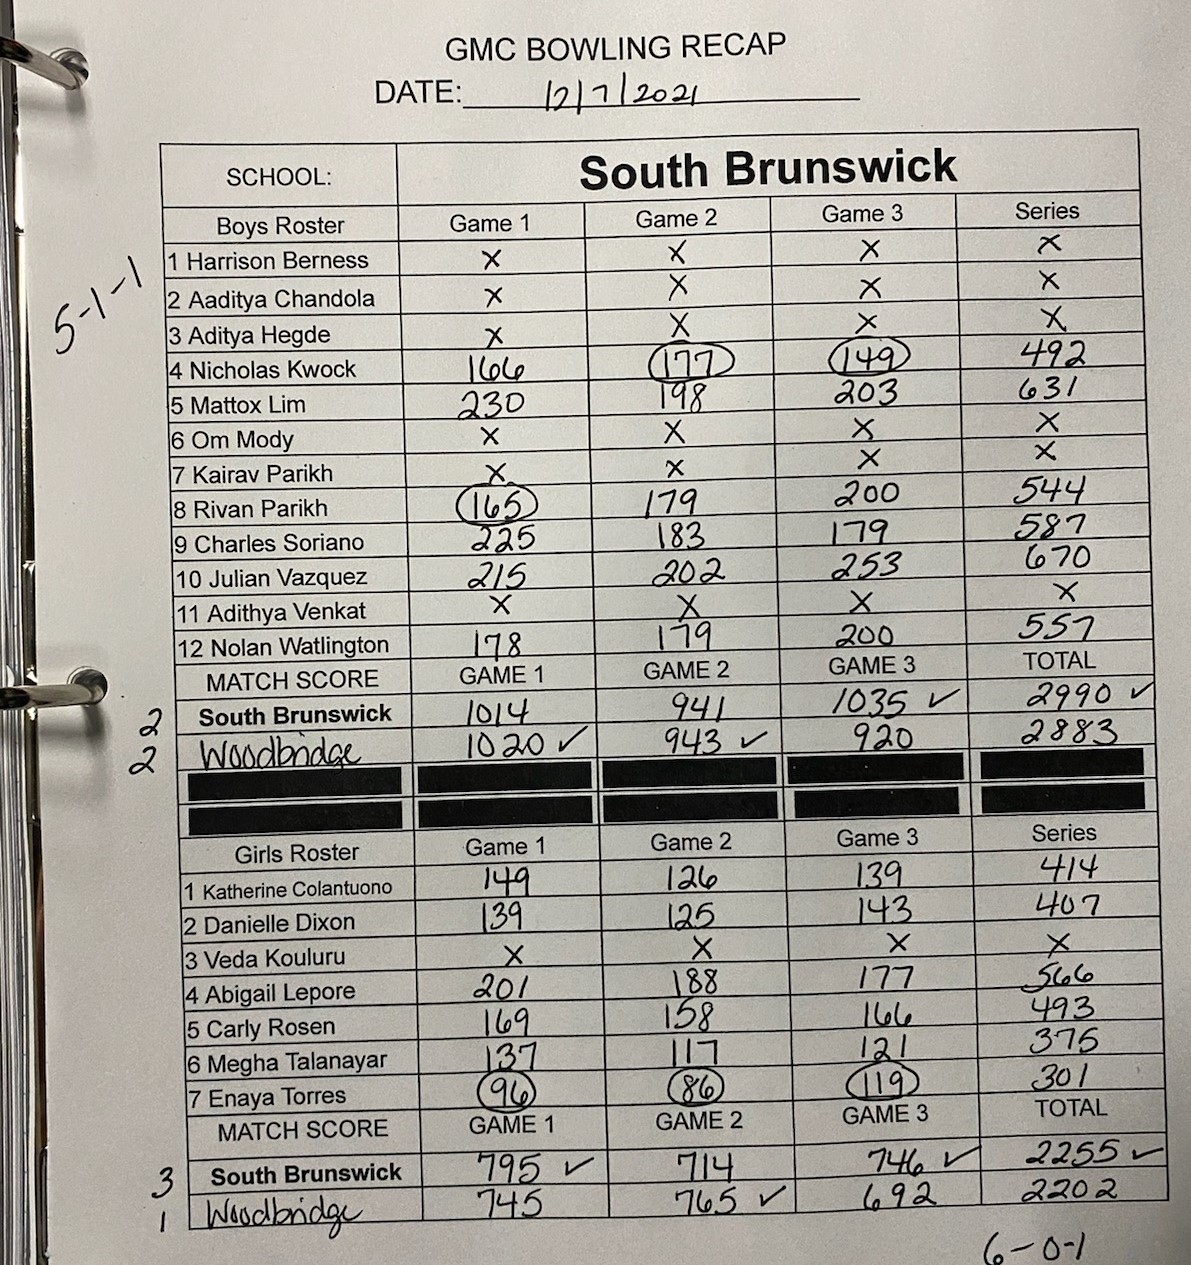 GMC BOWLING RECAP
DATE: 12/7/2021
SCHOOL: South Brunswick
Boys Roster Game 1 Game 2 Game 3 Series
1 Harrison Berness X X X X
2 Aaditya Chandola X X X X
5-1-1
3 Aditya Hegde X X X X
4 Nicholas Kwock 166 177 149 492
5 Mattox Lim 230 198 203 631
6 Om Mody X X X X
7 Kairav Parikh X X X X
8 Rivan Parikh 165 179 200 544
9 Charles Soriano 225 183 179 587
10 Julian Vazquez 215 202 253 670
11 Adithya Venkat X X X X
12 Nolan Watlington 178 179 200 557
MATCH SCORE GAME 1 GAME 2 GAME 3 TOTAL
2 South Brunswick 1014 941 1035 ✓ 2990 ✓
2 Woodbridge 1020 ✓ 943 ✓ 920 2883
Girls Roster Game 1 Game 2 Game 3 Series
1 Katherine Colantuono 149 126 139 414
2 Danielle Dixon 139 125 143 407
3 Veda Kouluru X X X X
4 Abigail Lepore 201 188 177 566
5 Carly Rosen 169 158 166 493
6 Megha Talanayar 137 117 121 375
7 Enaya Torres 96 86 119 301
MATCH SCORE GAME 1 GAME 2 GAME 3 TOTAL
3 South Brunswick 795 ✓ 714 746 ✓ 2255 ✓
1 Woodbridge 745 765 ✓ 692 2202
6-0-1